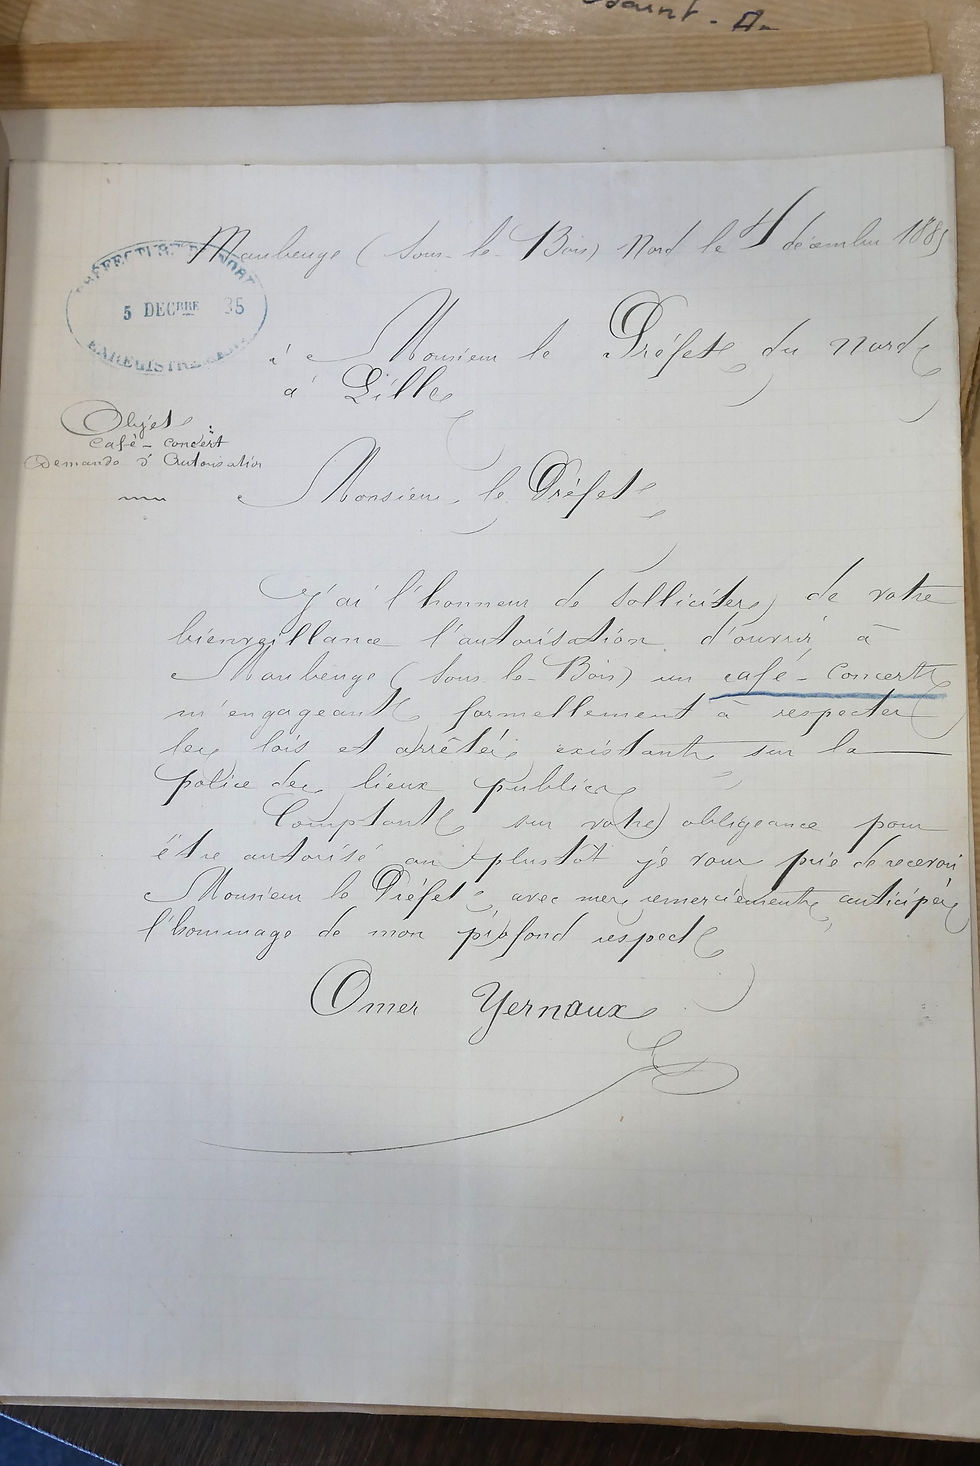 Saint-A
Maubeuge (Sous-le-Bois) Nord le 4 décembre 1885
PRÉFECTURE DU NORD
5 DECBRE 85
à Monsieur le Préfet du Nord
à Lille
Objet :
Café-concert
Demande d'Autorisation
Monsieur le Préfet,
J'ai l'honneur de solliciter de votre
bienveillance l'autorisation d'ouvrir à
Maubeuge (Sous-le-Bois) un café-concert
m'engageant formellement à respecter
les lois et arrêtés existants sur la
police des lieux publics
Comptant sur votre obligeance pour
être autorisé au plustôt je vous prie de recevoir
Monsieur le Préfet, avec mes remerciements anticipés,
l'hommage de mon profond respect
Omer Yernaux